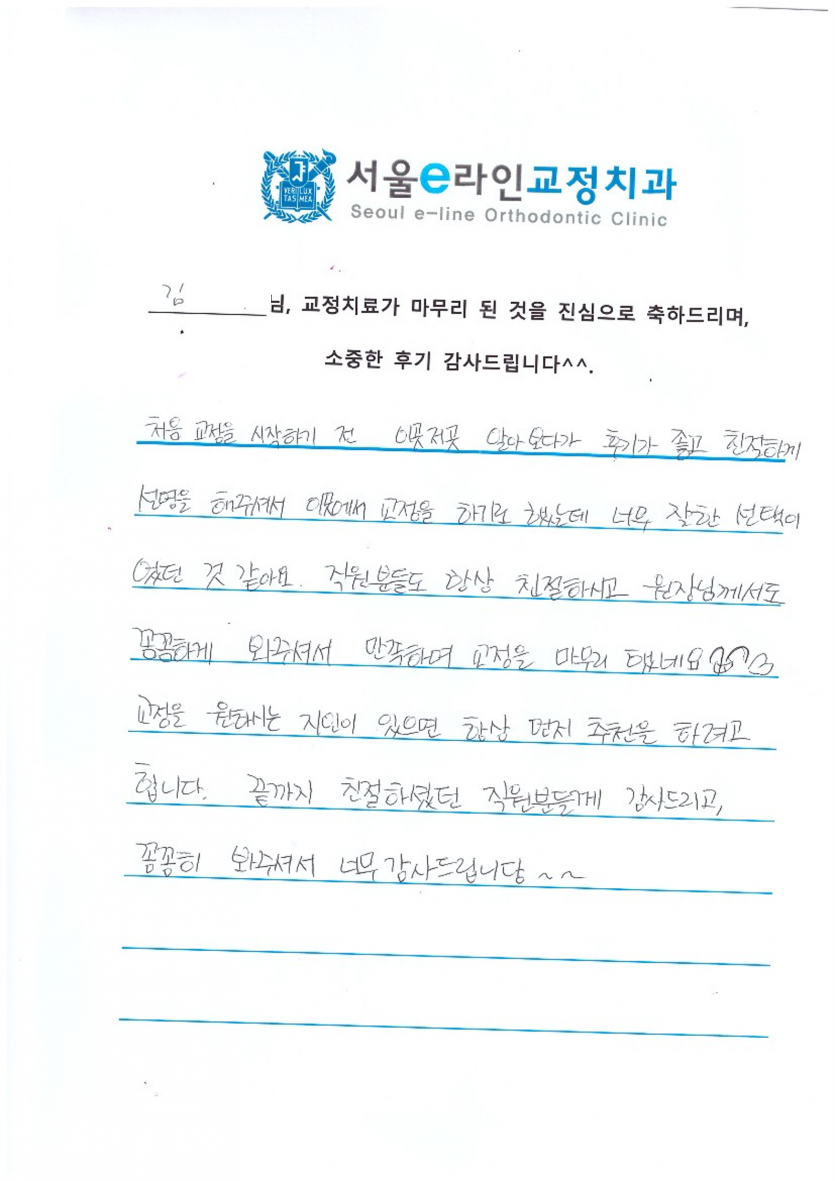 VERI LUX
TAS MEA
서울e라인교정치과
Seoul e-line Orthodontic Clinic
김 님, 교정치료가 마무리 된 것을 진심으로 축하드리며,
소중한 후기 감사드립니다^^.
처음 교정을 시작하기 전 이곳저곳 알아보다가 후기가 좋고 친절하게
설명을 해주셔서 이곳에서 교정을 하기로 했는데 너무 잘한 선택이
였던 것 같아요. 직원분들도 항상 친절하시고 원장님께서도
꼼꼼하게 봐주셔서 만족하며 교정을 마무리 했네요
교정을 원하시는 지인이 있으면 항상 먼저 추천을 하려고
합니다. 끝까지 친절하셨던 직원분들께 감사드리고,
꼼꼼히 봐주셔서 너무 감사드립니당 ~ ~